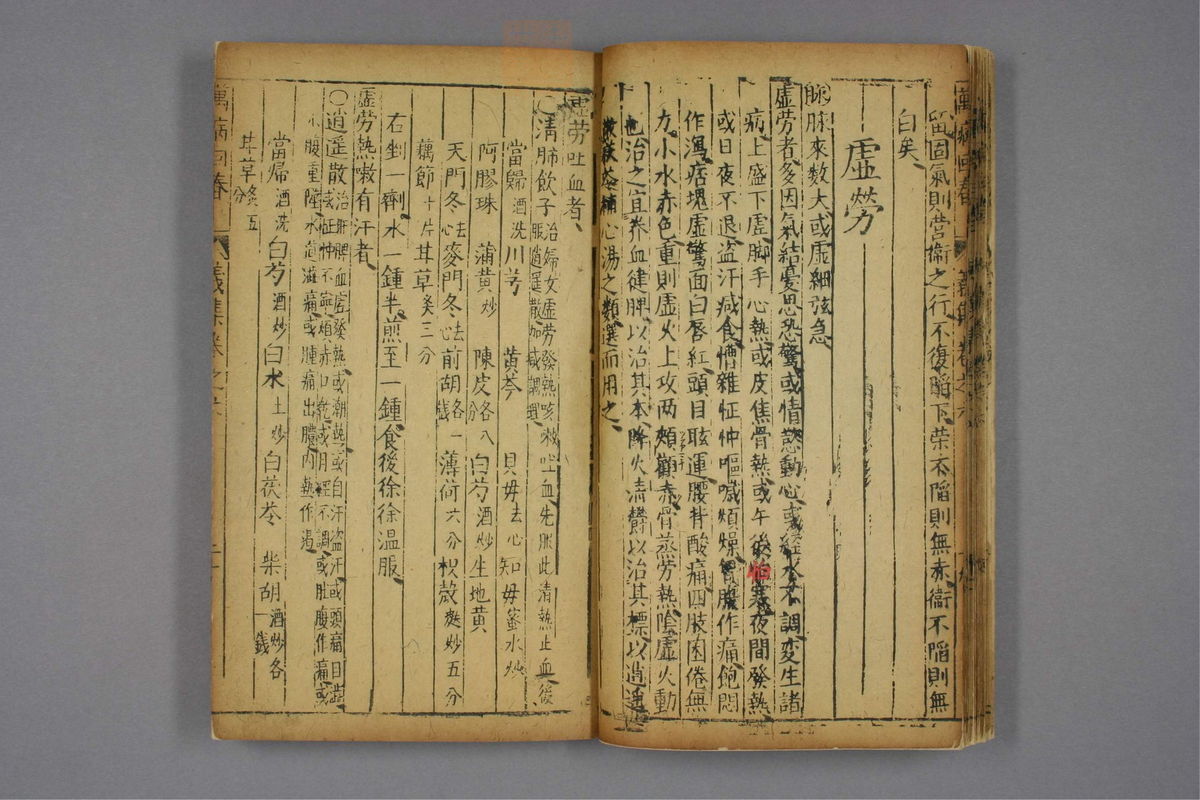 萬病回春 義集卷之六
留固氣則營衛之行不復陷下、榮不陷則無赤、衛不陷則無
白矣、
虛勞
脉 脉來數大或虛細弦急、
虛勞者多因氣結憂思恐驚或情慾動心或經水不調変生諸
病、上盛下虛、脚手心熱或皮焦骨熱或午後怕寒夜間發熱
或日夜不退盗汗减食嘈雜怔忡嘔喊煩燥胷腹作痛飽悶
作瀉痞塊虛驚面白唇紅頭目眩運腰背酸痛四肢困倦無
力、小水赤色重則虛火上攻两頰顴赤骨蒸勞熱陰虛火動
也治之宜养血健脾、以治其本、降火清欝以治其標、以逍遙
散茯苓補心湯之類選而用之、
虛勞吐血者、
〇清肺飲子 治婦女虛勞發熱咳嗽吐血、先服此清熱止血、後
服逍遙散加减調理、
當歸 酒洗 川芎 黄芩 貝毋 去心 知毋 蜜水炒
阿膠珠 蒲黄 炒 陳皮 各八分 白芍 酒炒 生地黄
天門冬 去心 麥門冬 去心 前胡 各一錢 薄荷 六分 枳殼 麩炒五分
藕節 十片 甘草 炙三分
右剉一劑、水一鍾半、煎至一鍾、食後徐徐温服、
虛勞熱嗽有汗者、
〇逍遥散 治肝脾血虛發熱或潮熱或自汗盗汗或頭痛目澁
或怔忡不寧頰赤口乾或月經不調或肚腹作痛或
小腹重墜水道澁痛或腫痛出膿内熱作渴
當歸 酒洗 白芍 酒炒 白朮 土炒 白茯苓 柴胡 酒炒各一錢
甘草 炙五分
萬病回春 義集卷之六